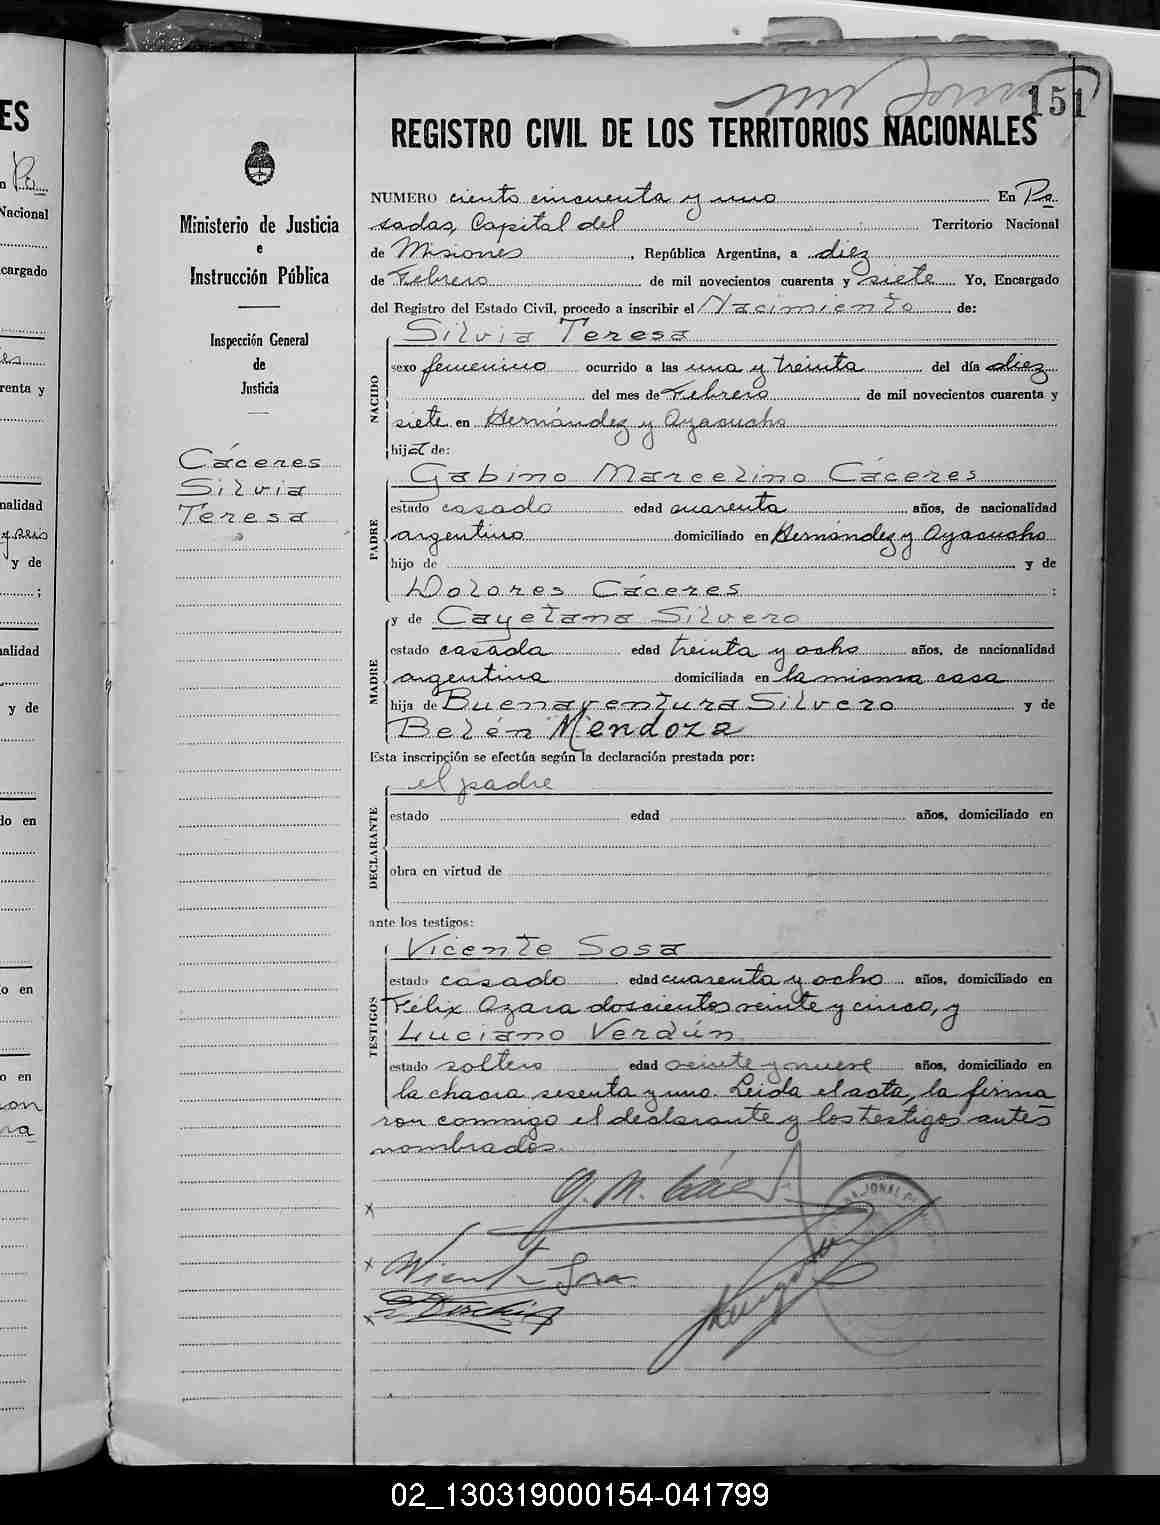 151
REGISTRO CIVIL DE LOS TERRITORIOS NACIONALES
Ministerio de Justicia
e
Instrucción Pública
Inspección General
de
Justicia
Cáceres
Silvia
Teresa
NUMERO ciento cincuenta y uno En Po
sadas, Capital del Territorio Nacional
de Misiones, República Argentina, a diez
de Febrero de mil novecientos cuarenta y siete Yo, Encargado
del Registro del Estado Civil, procedo a inscribir el Nacimiento de:
Silvia Teresa
NACIDO
sexo femenino ocurrido a las una y treinta del día diez
del mes de Febrero de mil novecientos cuarenta y
siete en Hernández y Ayacucho
hija de:
Gabino Marcelino Cáceres
PADRE
estado casado edad cuarenta años, de nacionalidad
argentino domiciliado en Hernández y Ayacucho
hijo de y de
Dolores Cáceres ;
y de Cayetana Silvero
MADRE
estado casada edad treinta y ocho años, de nacionalidad
argentina domiciliada en la misma casa
hija de Buenaventura Silvero y de
Belén Mendoza
Esta inscripción se efectúa según la declaración prestada por:
el padre
DECLARANTE
estado edad años, domiciliado en
obra en virtud de
ante los testigos:
Vicente Sosa
TESTIGOS
estado casado edad cuarenta y ocho años, domiciliado en
Félix Azara doscientos veinte y cinco, y
Luciano Verdún
estado soltero edad veinte y nueve años, domiciliado en
la chacra sesenta y uno. Leida el acta, la firma
ron conmigo el declarante y los testigos antes
nombrados.
G. M. Cáceres
Vicente Sosa
ES
Nacional
cargado
renta y
nalidad
y de
;
nalidad
y de
do en
o en
o en
02_130319000154-041799